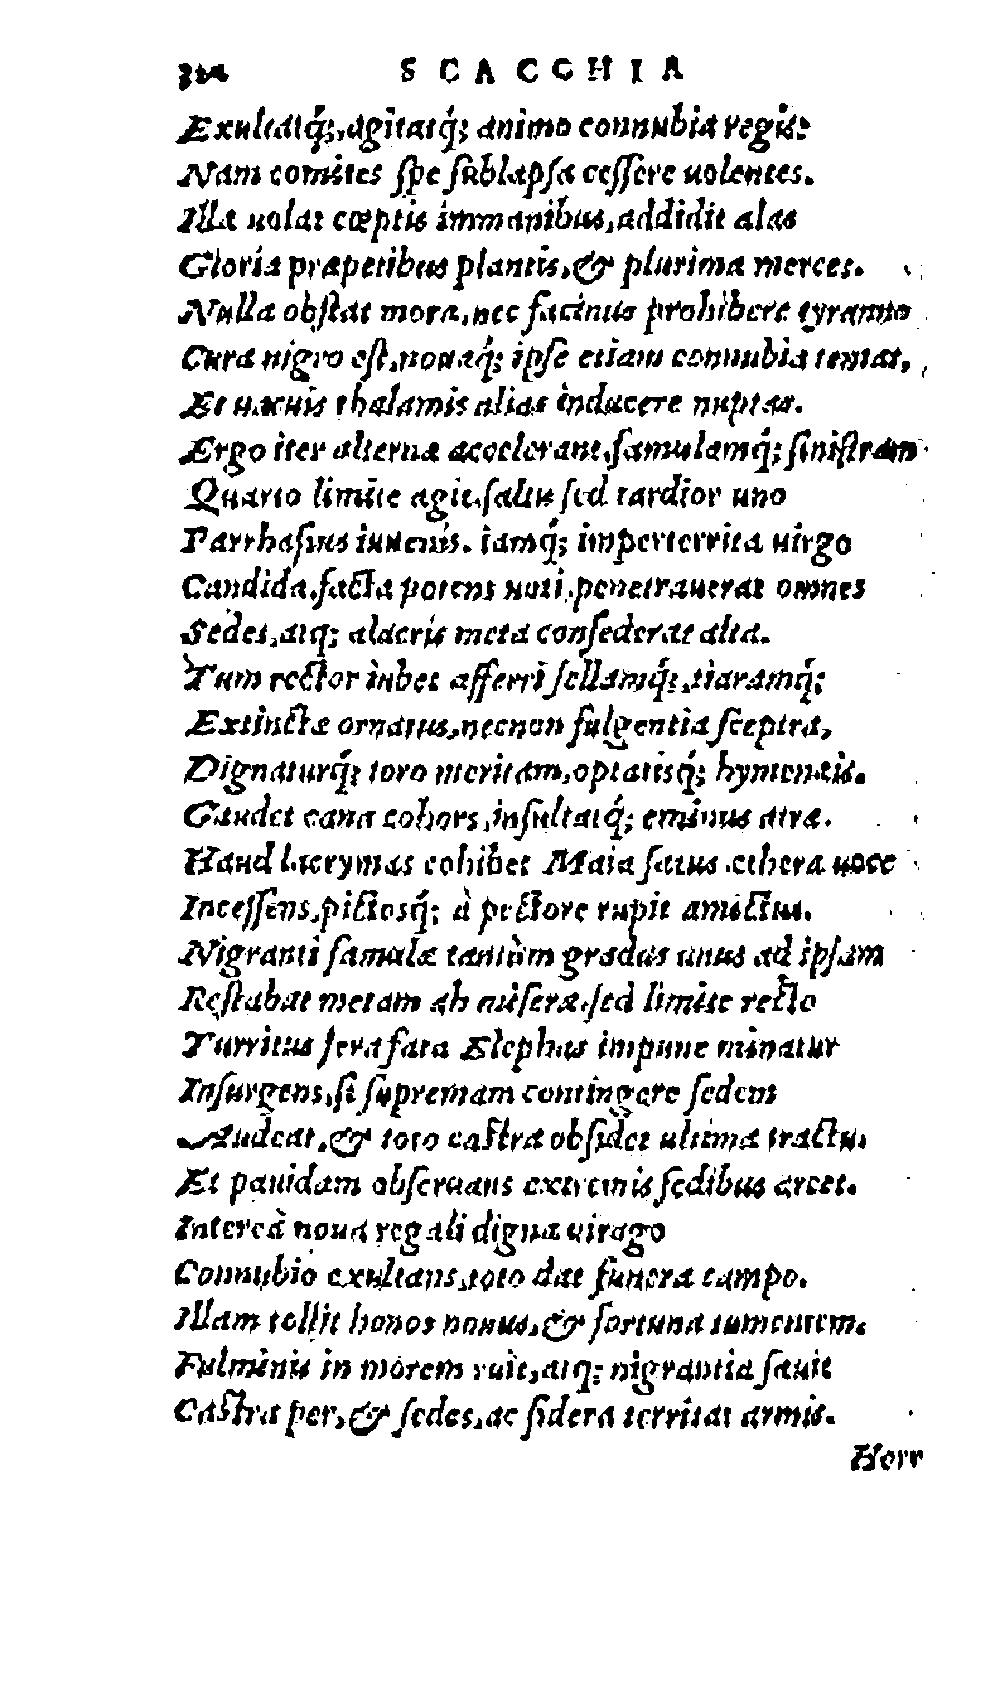 SCACCHIA
Exultatq́;, agitatq́; animo connubia regis:
Nam comites spe sublapsa cessere uolentes.
Illa uolat cœptis immanibus, addidit alas
Gloria præpetibus plantis, & plurima merces.
Nulla obstat mora, nec facinus prohibere tyranno
Cura nigro est, nouaq́; ipse etiam connubia tentat,
Et uacuis thalamis alias inducere nuptas.
Ergo iter alternæ accelerant, famulamq́; sinistram
Quarto limite agit, saltu sed tardior uno
Parrhasius iuuenis. iamq́; imperterrita uirgo
Candida, facta potens uoti, penetrauerat omnes
Sedes, atq; alacris meta consederat alta.
Tum rector iubet afferri sellamq́;, tiaramq́;
Extinctæ ornatus, necnon fulgentia sceptra,
Dignaturq́; toro meritam, optatisq́; hymenæis.
Gaudet cana cohors, insultatq́; eminus atræ.
Haud lacrymas cohibet Maia satus æthera uoce
Incessens, pictosq́; à pectore rupit amictus.
Nigranti famulæ tantùm gradus unus ad ipsam
Restabat metam ah miseræ, sed limite recto
Turritus fera fata Elephas impune minatur
Insurgens, si supremam contingere sedem
Audeat, & toto castra obsidet ultima tractu,
Et pauidam obseruans extremis sedibus arcet.
Intereà noua regali digna uirago
Connubio exultans, toto dat funera campo.
Illam tollit honos nouus, & fortuna iumentem.
Fulminis in morem ruit, atq; nigrantia sæuit
Castra per, & sedes, ac sidera territat armis.
Horr